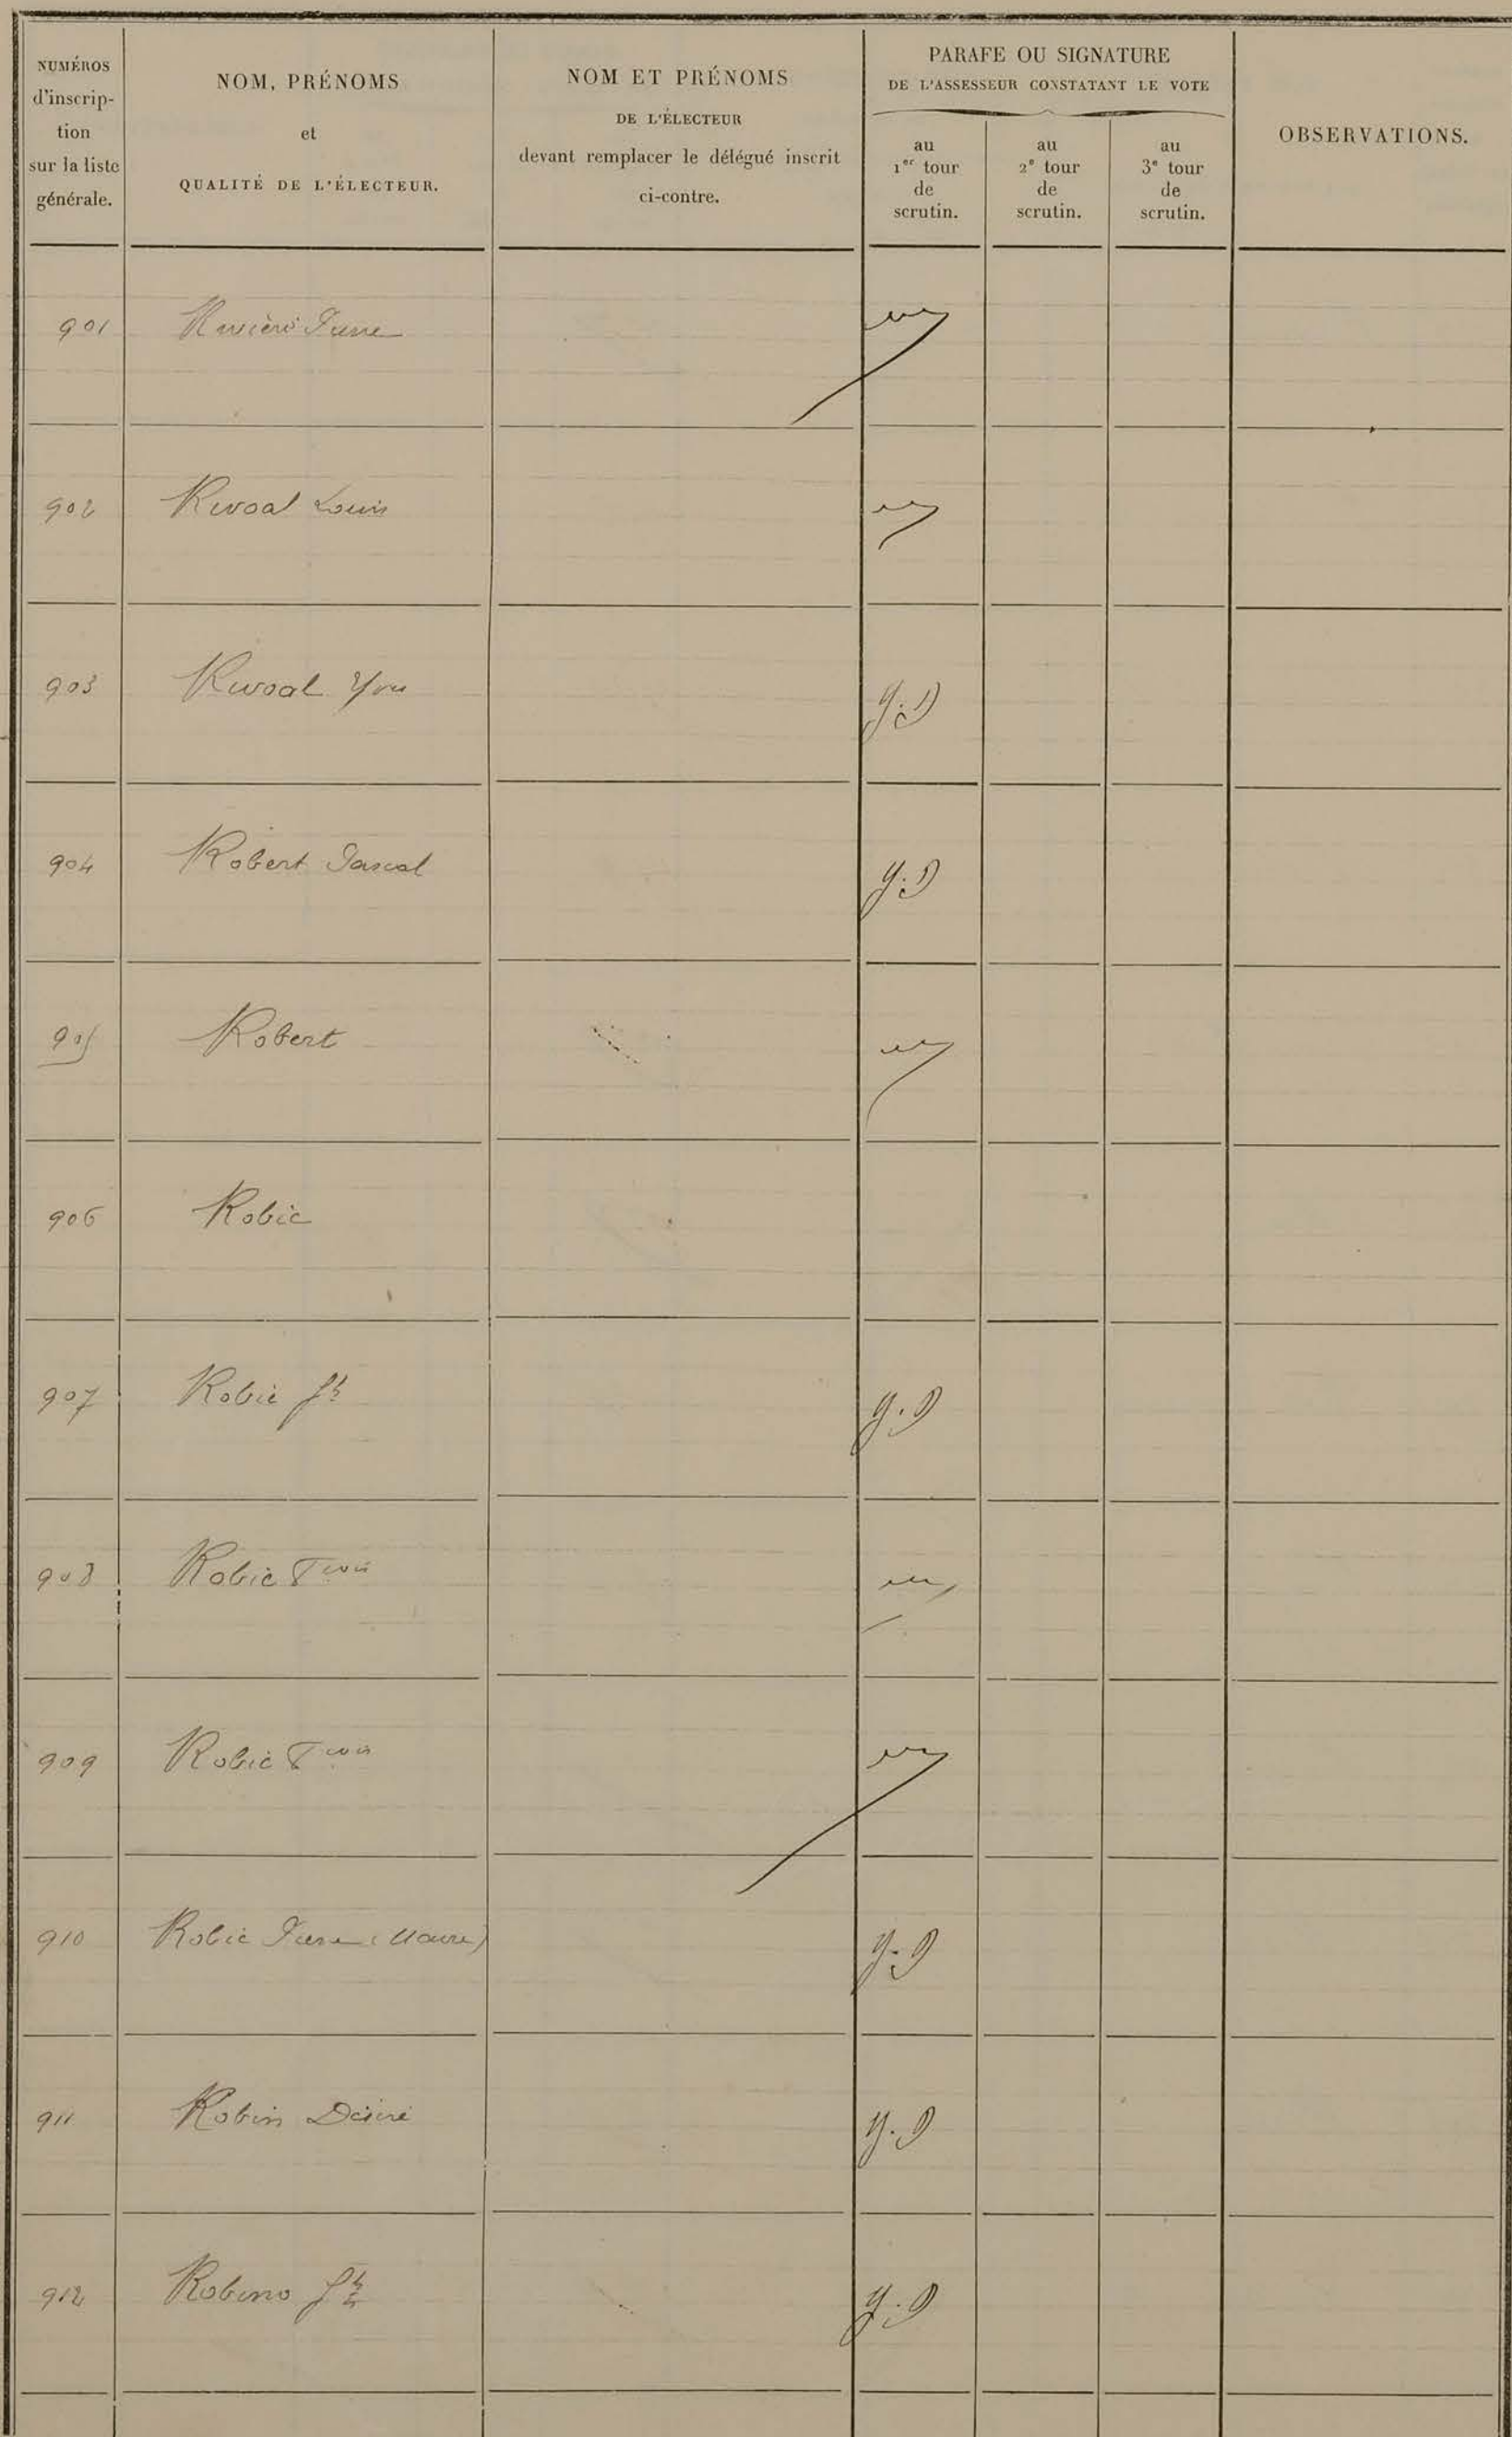 NUMÉROS
d'inscrip-
tion
sur la liste
générale.
NOM, PRÉNOMS
et
QUALITÉ DE L'ÉLECTEUR.
NOM ET PRÉNOMS
DE L'ÉLECTEUR
devant remplacer le délégué inscrit
ci-contre.
PARAFE OU SIGNATURE
DE L'ASSESSEUR CONSTATANT LE VOTE
au
1er tour
de
scrutin.
au
2e tour
de
scrutin.
au
3e tour
de
scrutin.
OBSERVATIONS.
901 Rivière Pierre
902 Rivoal Louis
903 Rivoal Yves
904 Robert Pascal
905 Robert
906 Robic
907 Robic Jh
908 Robic Fcois
909 Robic Fcois
910 Robic Pierre
911 Robin Désiré
912 Robino Jh